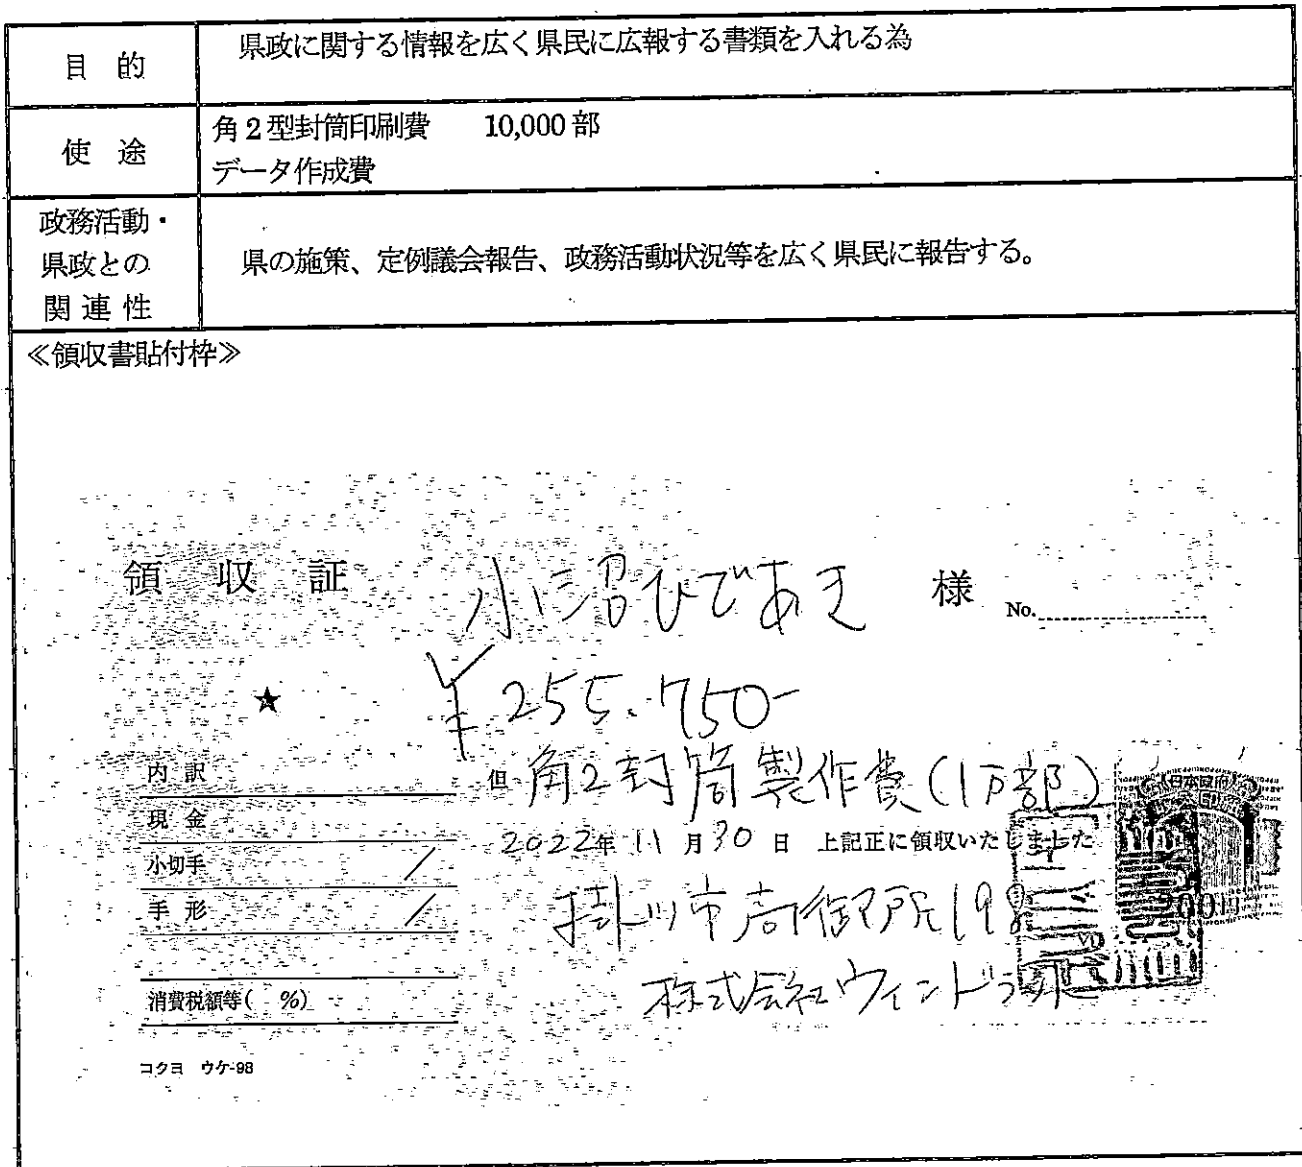 目的
県政に関する情報を広く県民に広報する書類を入れる為
使途
角2型封筒印刷費 10,000部
データ作成費
政務活動・
県政との
関連性
県の施策、定例議会報告、政務活動状況等を広く県民に報告する。
≪領収書貼付枠≫
領収証
小沼ひであき 様 No.
★ ¥255.750-
但 角2封筒製作費(1万部)
内訳
現金
小切手
手形
消費税額等( %)
2022年11月30日 上記正に領収いたしました
掛川市高御所
株式会社ウィンド
日本政府
印
200
コクヨ ウケ-98